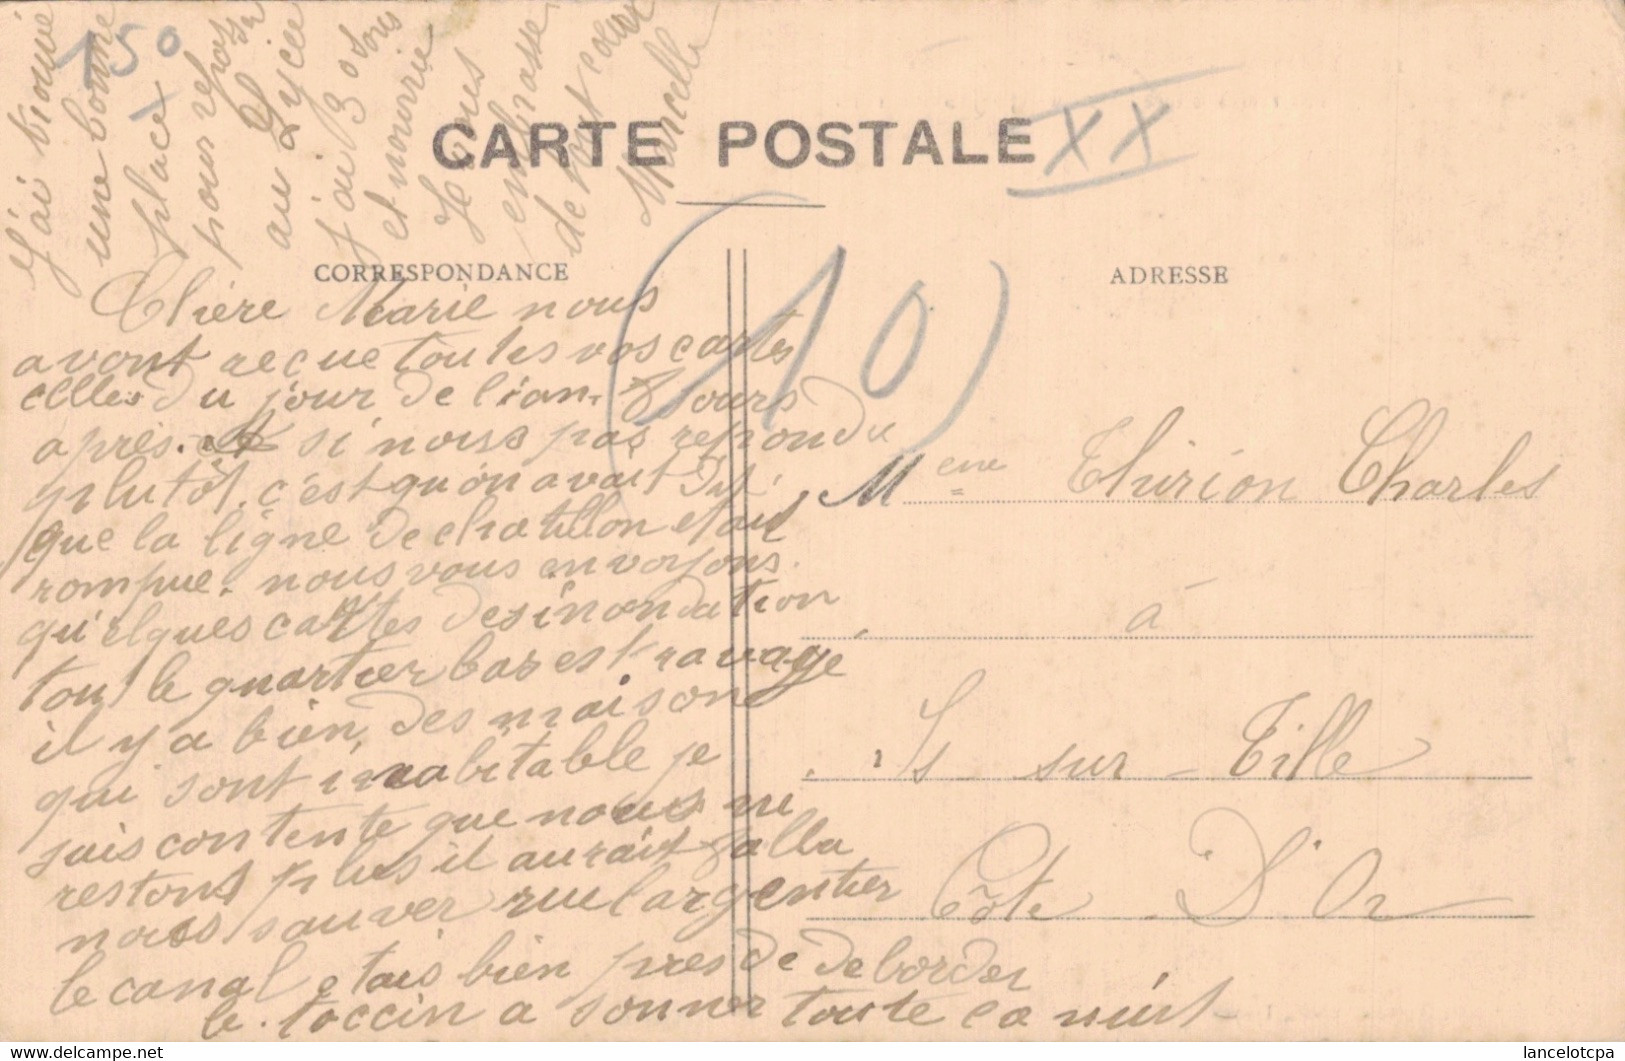 150
CARTE POSTALE
XX
(10)
CORRESPONDANCE
ADRESSE
Chère Marie nous
avont reçue toutes vos cartes
celles du jour de l'an. 8 jours
après. si nous pas repondu
plutôt. c'est qu'on avait dit
que la ligne de chatillon etais
rompue. nous vous envoyons
qu'elques cartes des inondation
tout le quartier bas est ravagé
il y a bien des maisons
qui sont inabitable je
suis contente que nous ni
restons plus il aurait fallu
nous sauver rue largentier
le canal etais bien pres de deborder
le toccin a sonner toute la nuit
J'ai trouvé
une bonne
place
pour repas
au Lycée
j'ai 30 sous
et nourrie
Je vous
embrasse
de tout coeur
Marcelle
Mme Thirion Charles
à
Is sur Tille
Côte D'Or
lancelotcpa
www.delcampe.net